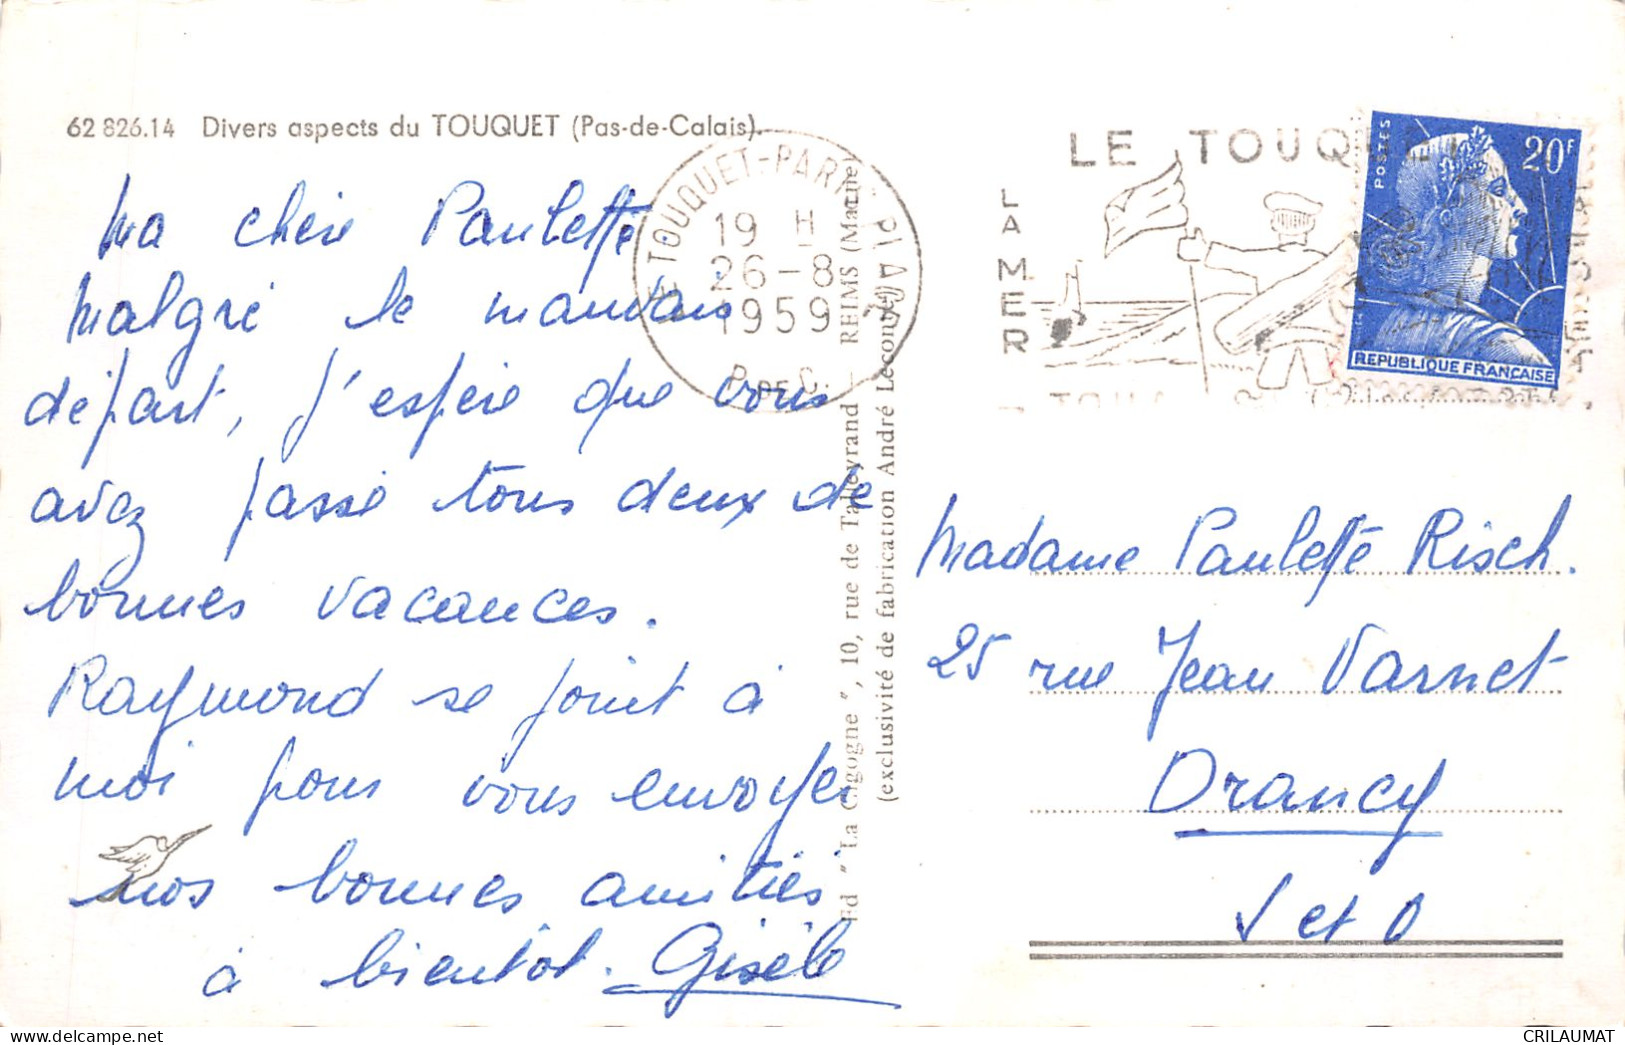 62 826.14 Divers aspects du TOUQUET (Pas-de-Calais).
Ma chère Paulette
Malgré le mauvais
départ, j'espère que vous
avez passé tous deux de
bonnes vacances.
Raymond se joint à
moi pour vous envoyer
nos bonnes amitiés
à bientôt. Gisèle
LE TOUQUET-PARIS PLAGE
19 H
26-8
1959
P. DE C.
Ed " La Cigogne ", 10, rue de Talleyrand - REIMS (Marne)
(exclusivité de fabrication André Leconte)
LE TOUQUET
LA MER
POSTES
20F
REPUBLIQUE FRANÇAISE
Madame Paulette Risch.
25 rue Jean Varnet
Drancy
S et O
CRILAUMAT